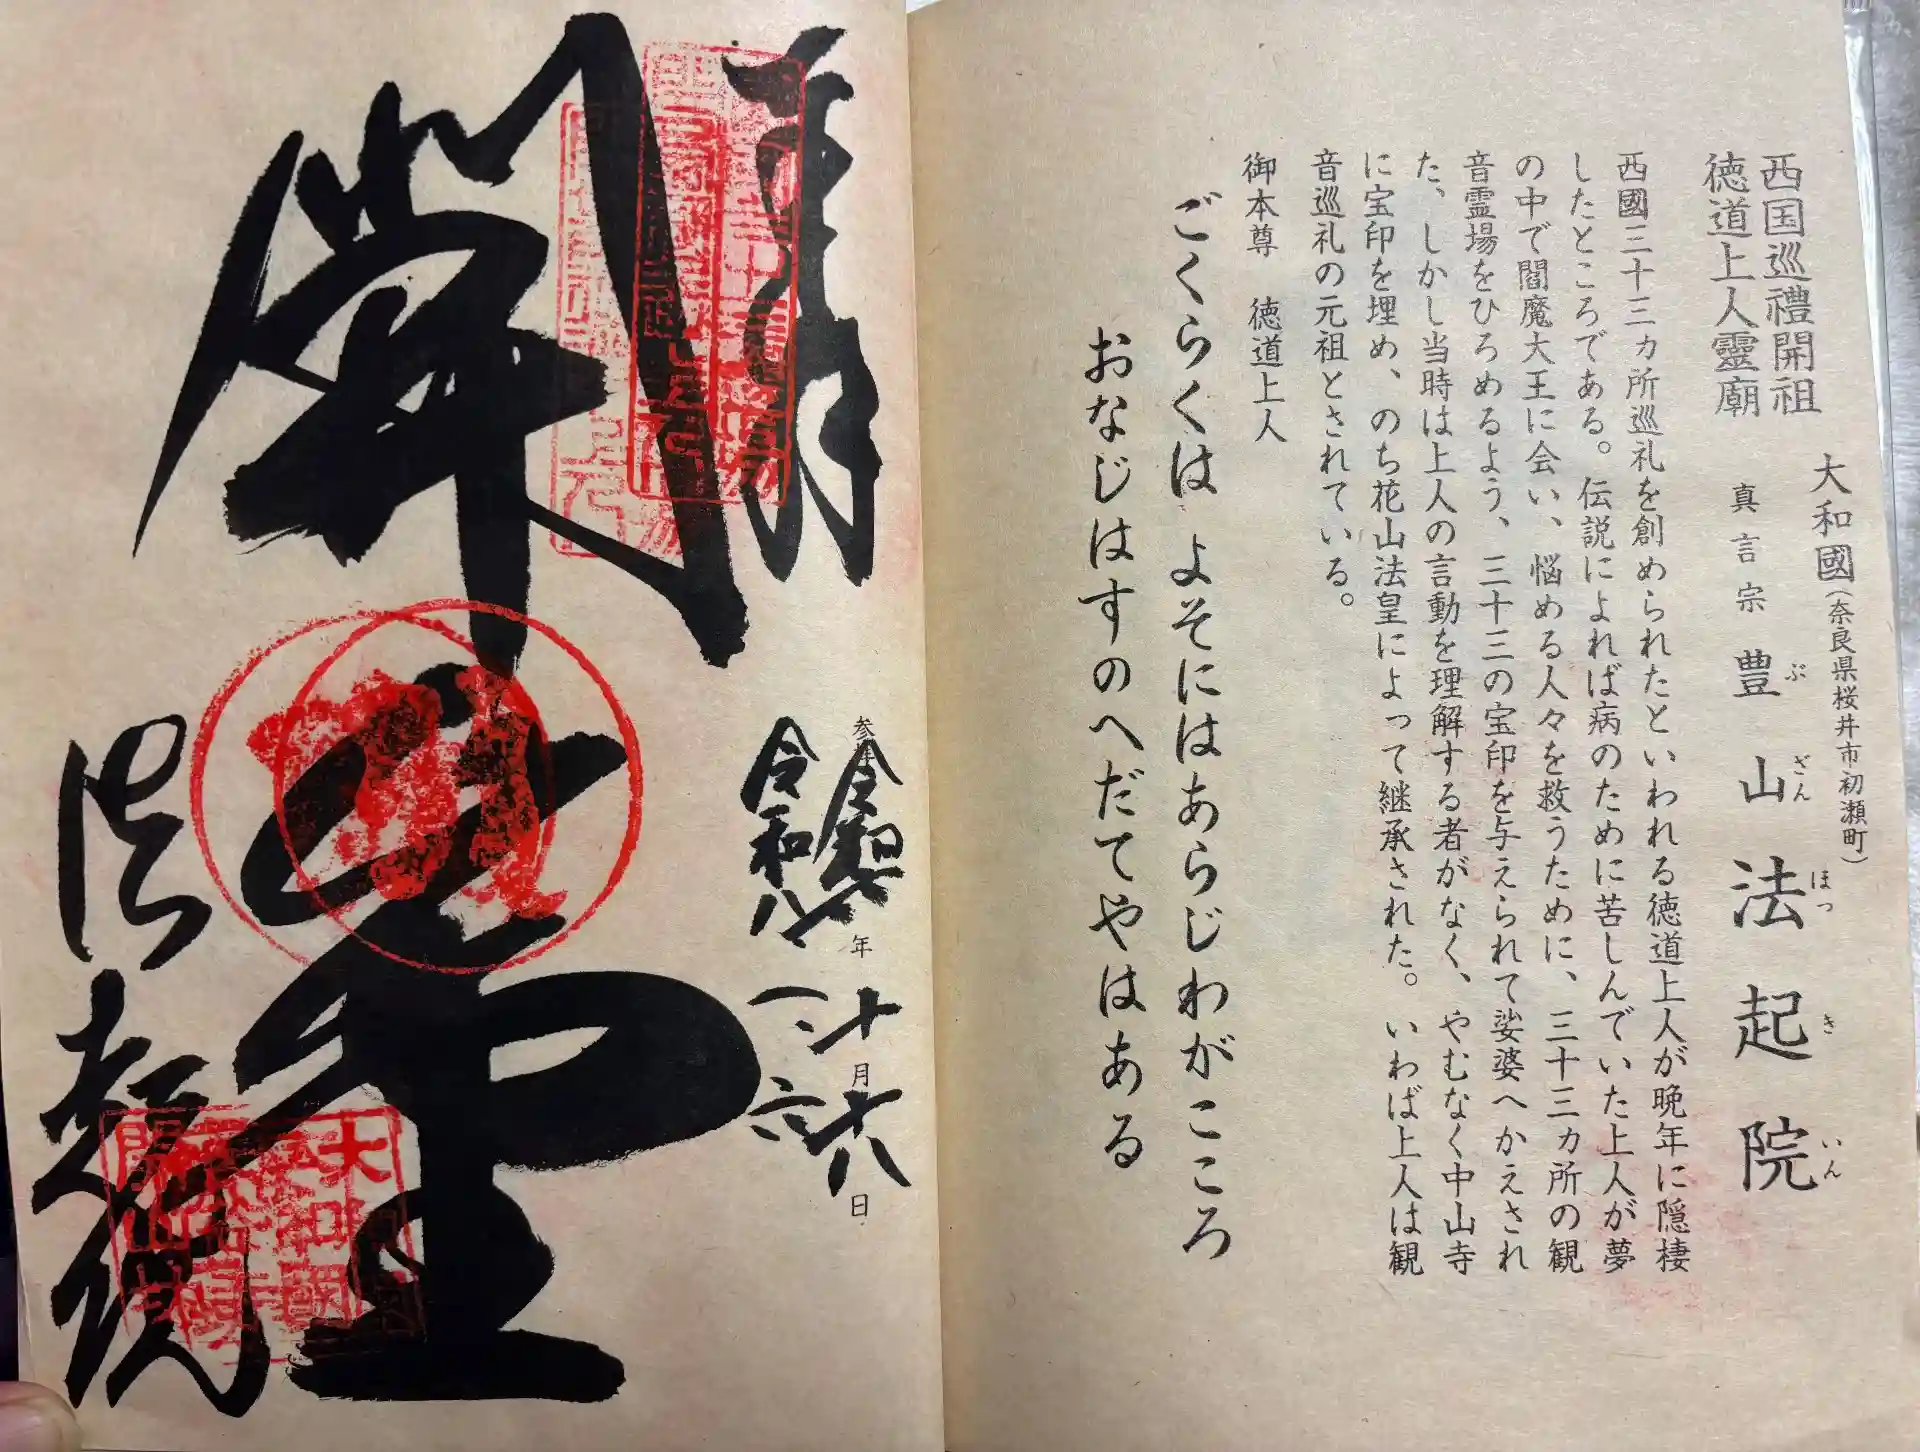 大和國（奈良県桜井市初瀬町）
西国巡禮開祖
徳道上人靈廟
真言宗 豊山 法起院
ぶざん ほっきいん
西國三十三カ所巡礼を創められたといわれる徳道上人が晩年に隠棲
したところである。伝説によれば病のために苦しんでいた上人が夢
の中で閻魔大王に会い、悩める人々を救うために、三十三カ所の観
音霊場をひろめるよう、三十三の宝印を与えられて娑婆へかえされ
た、しかし当時は上人の言動を理解する者がなく、やむなく中山寺
に宝印を埋め、のち花山法皇によって継承された。いわば上人は観
音巡礼の元祖とされている。
御本尊 徳道上人
ごくらくは よそにはあらじわがこころ
おなじはすのへだてやはある
参拝
令和七年十月十八日
令和八、一、六
開山堂
法起院
大和國